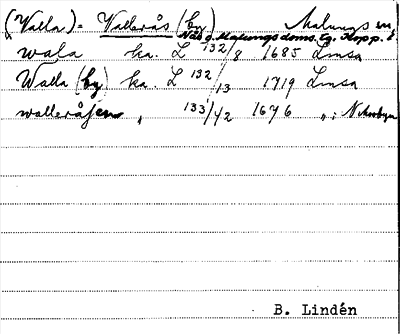 (Walla) = Vallerås (by) Malungs sn
Näs o. Malungs doms. tg. Kopp. l
wala ka. L 132/8 1685 Lmsa
Walla (by) ka. L 132/13 1719 Lmsa
walleråsen „ 133/42 1676 „ :
B. Lindén